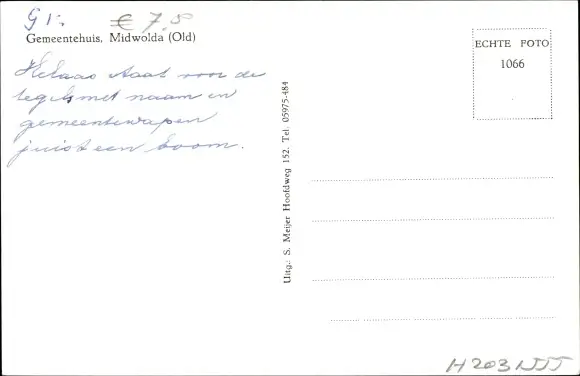 Gr.
€ 7.5
Gemeentehuis, Midwolda (Old)
ECHTE FOTO
1066
Helaas staat voor de
tegels met naam en
gemeentewapen
juist een boom.
Uitg.: S. Meijer Hoofdweg 152. Tel. 05975-484